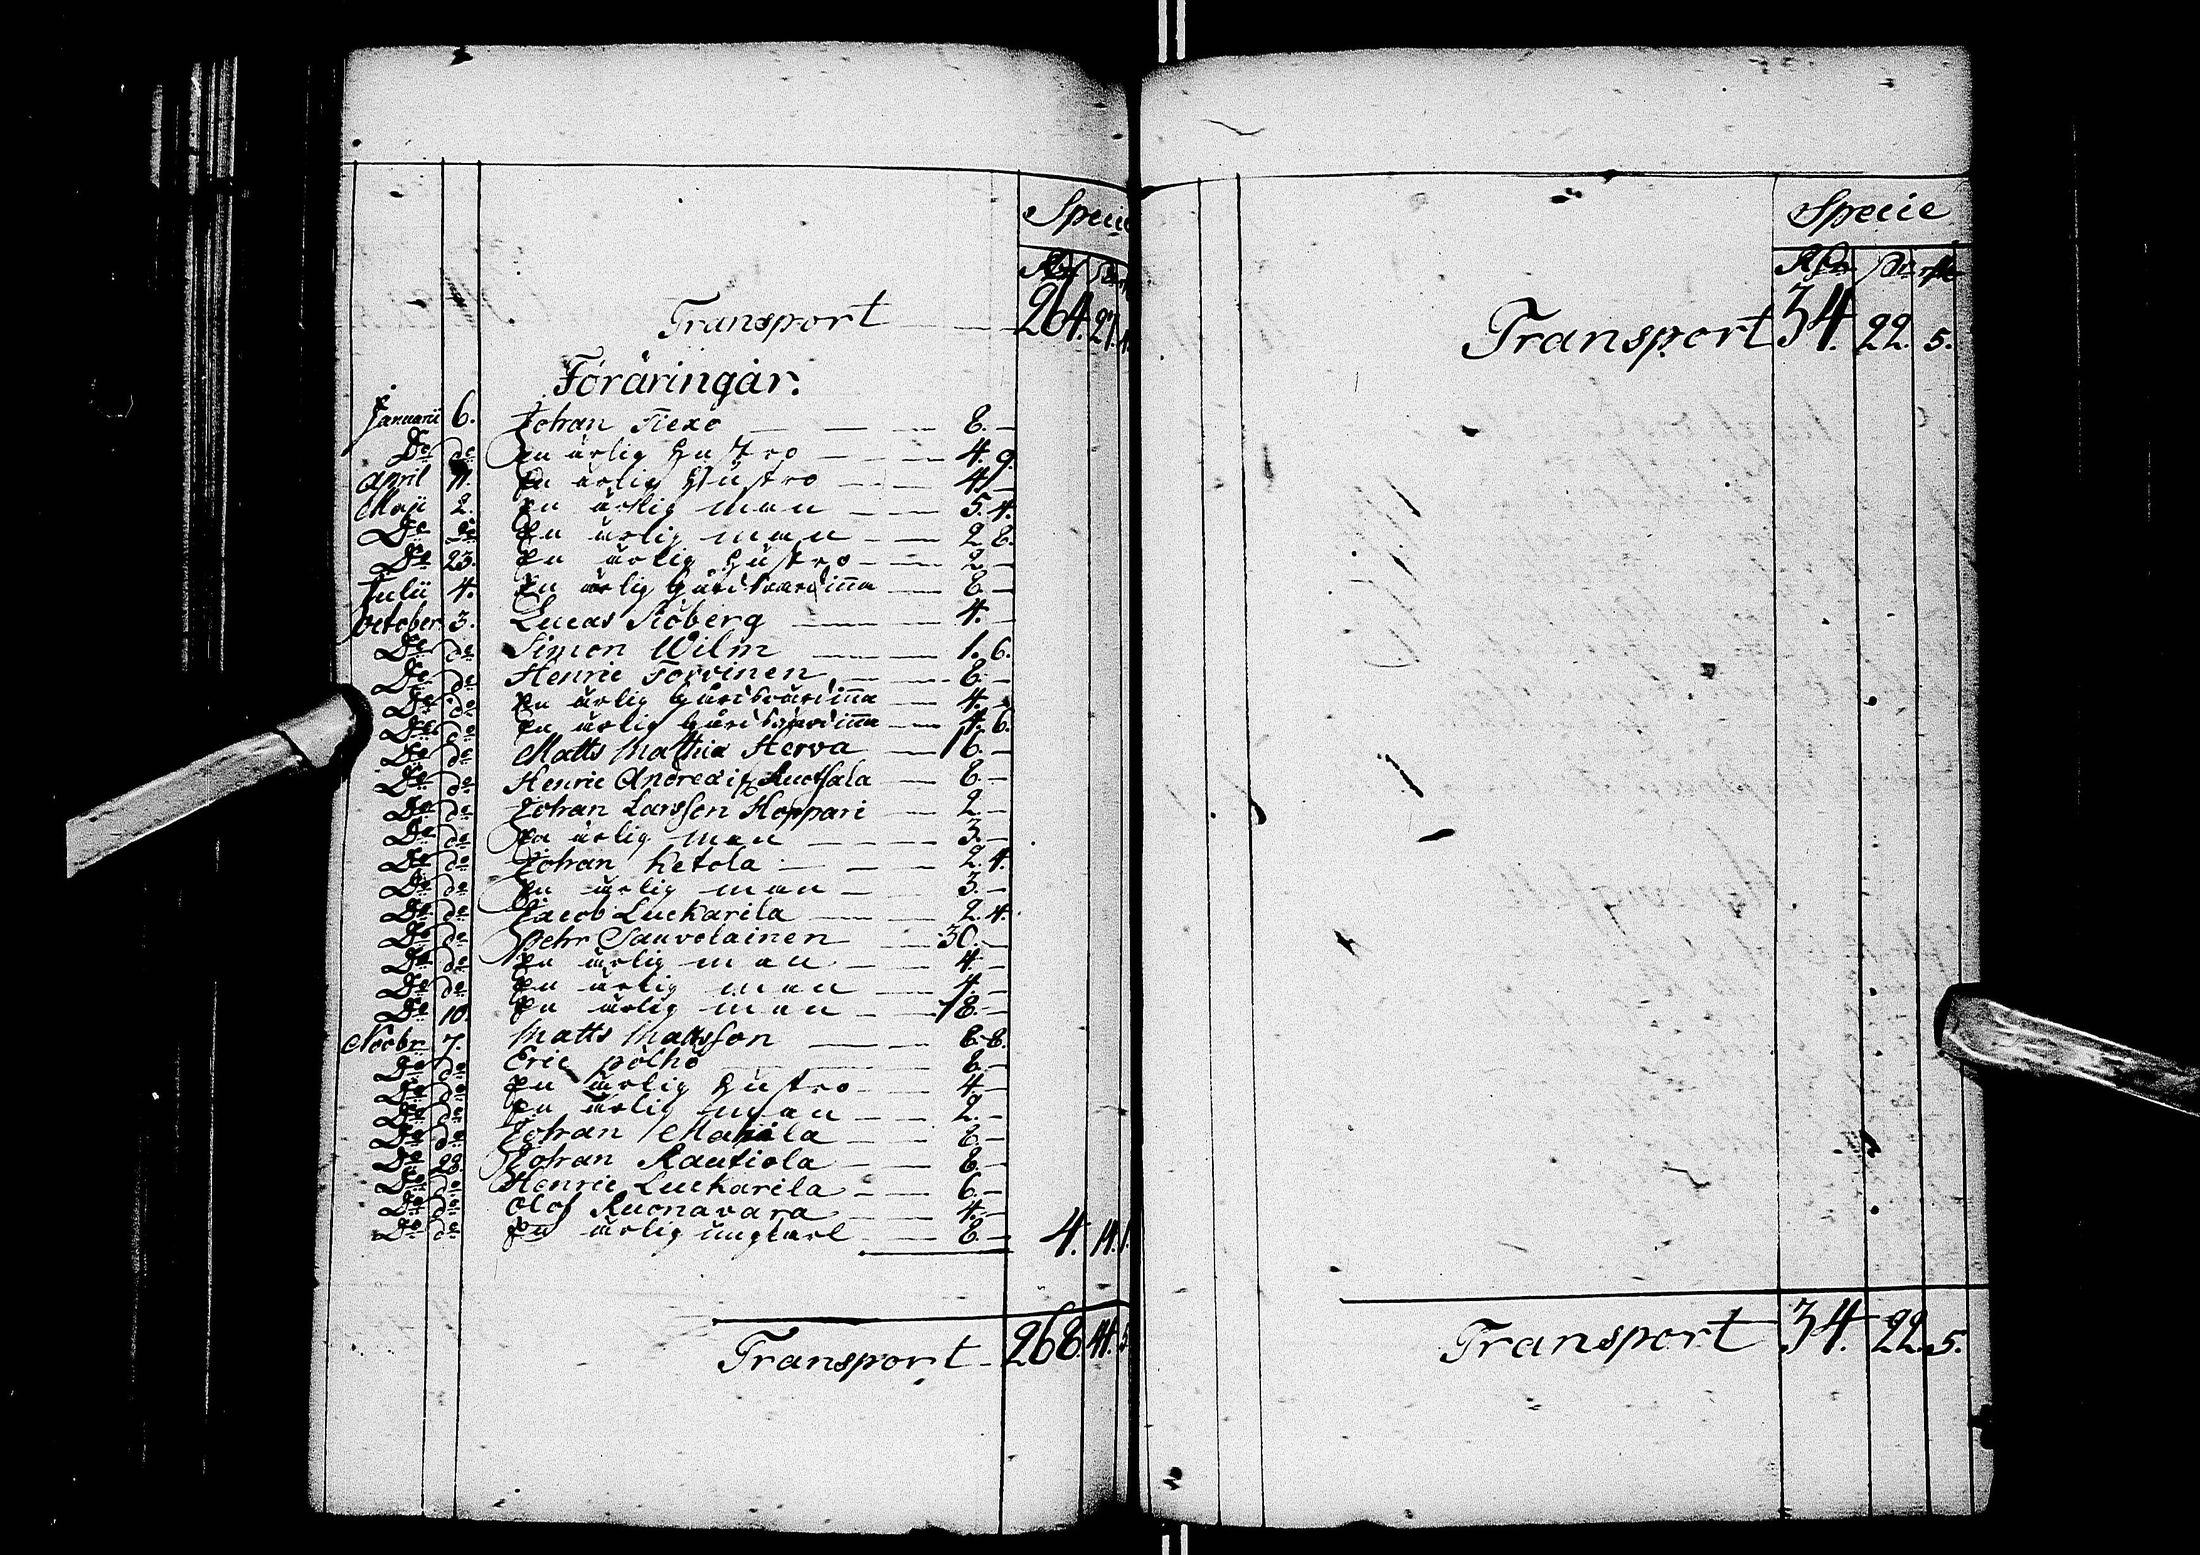 Specie
Rdr Sk
Transport 264. 27.
Föräringar.
Januarii 6. Johan Fiexo 8. —
Do do En ärlig Hustro 4. 9.
April 11. En ärlig Hustro 4. —
Maji 2. En ärlig man 5. 4.
Do do En ärlig man 2. 8.
Do 23. En ärlig Hustro 2. —
Julii 4. En ärlig Gårdsvärdinna 8. —
October 3. Lucas Sioberg 4. —
Do do Simon Wilm 1. 6.
Do do Henric Torvinen 8. —
Do do En ärlig Gårdsvärdinna 4. —
Do do En ärlig Gårdsvärdinna 4. 6.
Do do Matts Mathiæ Herva 16. —
Do do Henric Andreæ Ruotsala 8. —
Do do Johan Larsson Hoppari 2. —
Do do En ärlig man 3. —
Do do Johan Ketola 2. 4.
Do do En ärlig man 3. —
Do do Jacob Luckarila 2. 4.
Do do Pehr Sauvolainen 30. —
Do do En ärlig man 4. —
Do do En ärlig man 4. —
Do 10. En ärlig man 18. —
Novbr 7. Matts Mattsson 8. 8.
Do do Eric Pölhö 8. —
Do do En ärlig Hustro 4. —
Do do En ärlig man 2. —
Do do Johan Makila 8. —
Do 28. Johan Rautiola 8. —
Do do Henric Luckarila 6. —
Do do Olof Ruonavara 4. —
Do do En ärlig ungkarl 8. — 4. 14. 1.
Transport 268. 41.
Specie
Rdr Sk rst
Transport 34. 22. 5.
Transport 34. 22. 5.